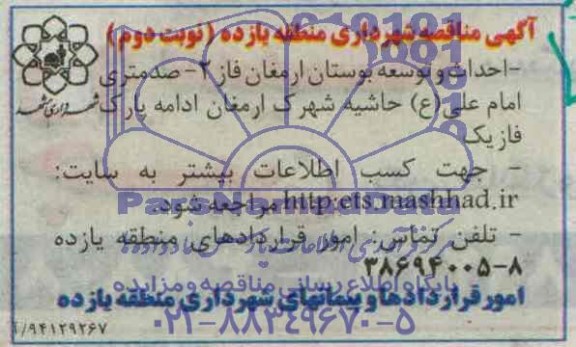 آگهی مناقصه شهرداری منطقه یازده (نوبت دوم)
-احداث و توسعه بوستان ارمغان فاز ۲- صدمتری
امام علی(ع) حاشیه شهرک ارمغان ادامه پارک
فاز یک
- جهت کسب اطلاعات بیشتر به سایت:
http:ets.mashhad.ir مراجعه شود.
- تلفن تماس: امور قراردادهای منطقه یازده
۳۸۶۹۴۰۰۵-۸
امور قراردادها و پیمانهای شهرداری منطقه یازده
/۹۴۱۲۹۲۶۷
شهرداری مشهد
ParsNamadData
پایگاه اطلاع رسانی مناقصه و مزایده
۰۲۱-۸۸۳۴۹۶۷۰-۵